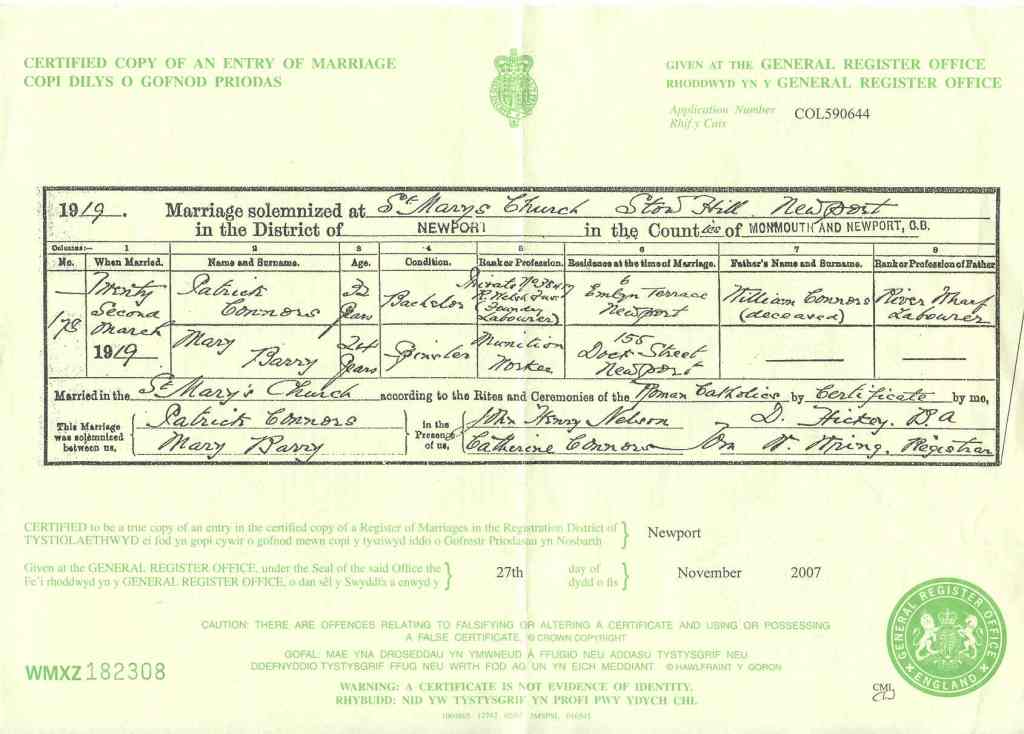 CERTIFIED COPY OF AN ENTRY OF MARRIAGE
COPI DILYS O GOFNOD PRIODAS
GIVEN AT THE GENERAL REGISTER OFFICE
RHODDWYD YN Y GENERAL REGISTER OFFICE
Application Number COL590644
Rhif y Cais
1919. Marriage solemnized at St Marys Church Stow Hill Newport
in the District of NEWPORT in the Counties of MONMOUTH AND NEWPORT, G.B.
Columns:— 1 2 3 4 5 6 7 8
No. When Married. Name and Surname. Age. Condition. Rank or Profession. Residence at the time of Marriage. Father's Name and Surname. Rank or Profession of Father
178 Twenty Second March 1919
Patrick Connors 32 years Bachelor Private R. Welsh Fus. (Foundry Labourer) 6 Emlyn Terrace Newport William Connors (deceased) River Wharf Labourer
Mary Barry 24 years Spinster Munition Worker 155 Dock Street Newport
Married in the St Mary's Church according to the Rites and Ceremonies of the Roman Catholics by Certificate by me,
This Marriage was solemnized between us, Patrick Connors Mary Barry
in the Presence of us, John Henry Nelson Catherine Connors
D. Hickey. B.A
W. Spring. Registrar
CERTIFIED to be a true copy of an entry in the certified copy of a Register of Marriages in the Registration District of Newport
TYSTIOLAETHWYD ei fod yn gopi cywir o gofnod mewn copi y tystiwyd iddo o Gofrestr Priodasau yn Nosbarth
Given at the GENERAL REGISTER OFFICE, under the Seal of the said Office the 27th day of November 2007
Fe'i rhoddwyd yn y GENERAL REGISTER OFFICE, o dan sêl y Swyddfa a enwyd y dydd o fis
CAUTION: THERE ARE OFFENCES RELATING TO FALSIFYING OR ALTERING A CERTIFICATE AND USING OR POSSESSING
A FALSE CERTIFICATE. © CROWN COPYRIGHT
GOFAL: MAE YNA DROSEDDAU YN YMWNEUD Â FFUGIO NEU ADDASU TYSTYSGRIF NEU
DDEFNYDDIO TYSTYSGRIF FFUG NEU WRTH FOD AG UN YN EICH MEDDIANT. © HAWLFRAINT Y GORON
WARNING: A CERTIFICATE IS NOT EVIDENCE OF IDENTITY.
RHYBUDD: NID YW TYSTYSGRIF YN PROFI PWY YDYCH CHI.
WMXZ 182308
CML
GENERAL REGISTER OFFICE
ENGLAND